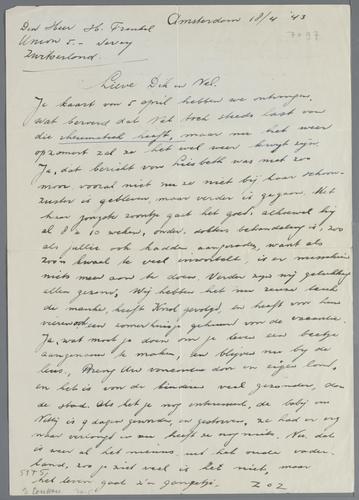 Den Heer H. Frankel Amsterdam 18/4 '43
Union 5. 7097
Zwitserland.
Lieve Dik en Nel.
Je kaart van 5 april hebben we ontvangen,
wat beroerd dat Nel toch steeds last van
die rheumatiek heeft, maar nu het weer
opzomert zal ze het wel weer kwijt zijn.
Ja, dat bericht van Liesbeth was niet zo
mooi vooral niet nu ze niet bij haar schoon-
zuster is gebleven, maar verder is gegaan. Met
haar jongste zoontje gaat het goed, alhoewel hij
al 8 a 10 weken, onder dokters behandeling is, zo
als jullie ook hadden aangeraden, want als
zo'n kwaal te veel is er misschien
niets meer aan te doen. Verder zijn wij gelukkig
allen gezond, Wij hebben het nu reuze
de heeft gevolgd, en heeft voor hun
vieren een zomerhuisje gehuurd voor de vacantie.
Ja, wat moet je doen om je leven een beetje
aangenaam te maken, en blijven nu bij de
en eigen
en het is voor de kinderen veel gezonder, dan
de stad. Als het je nog interesseert, de baby van
Netty is 9 dagen geworden en gestorven, ze had er erg
naar verlangd en nu heeft ze nog niets. Nu, dat
is weer al het nieuws uit het oude vader-
land, zo je ziet veel is het niet, maar
het leven gaat z'n gangetje. ZOZ